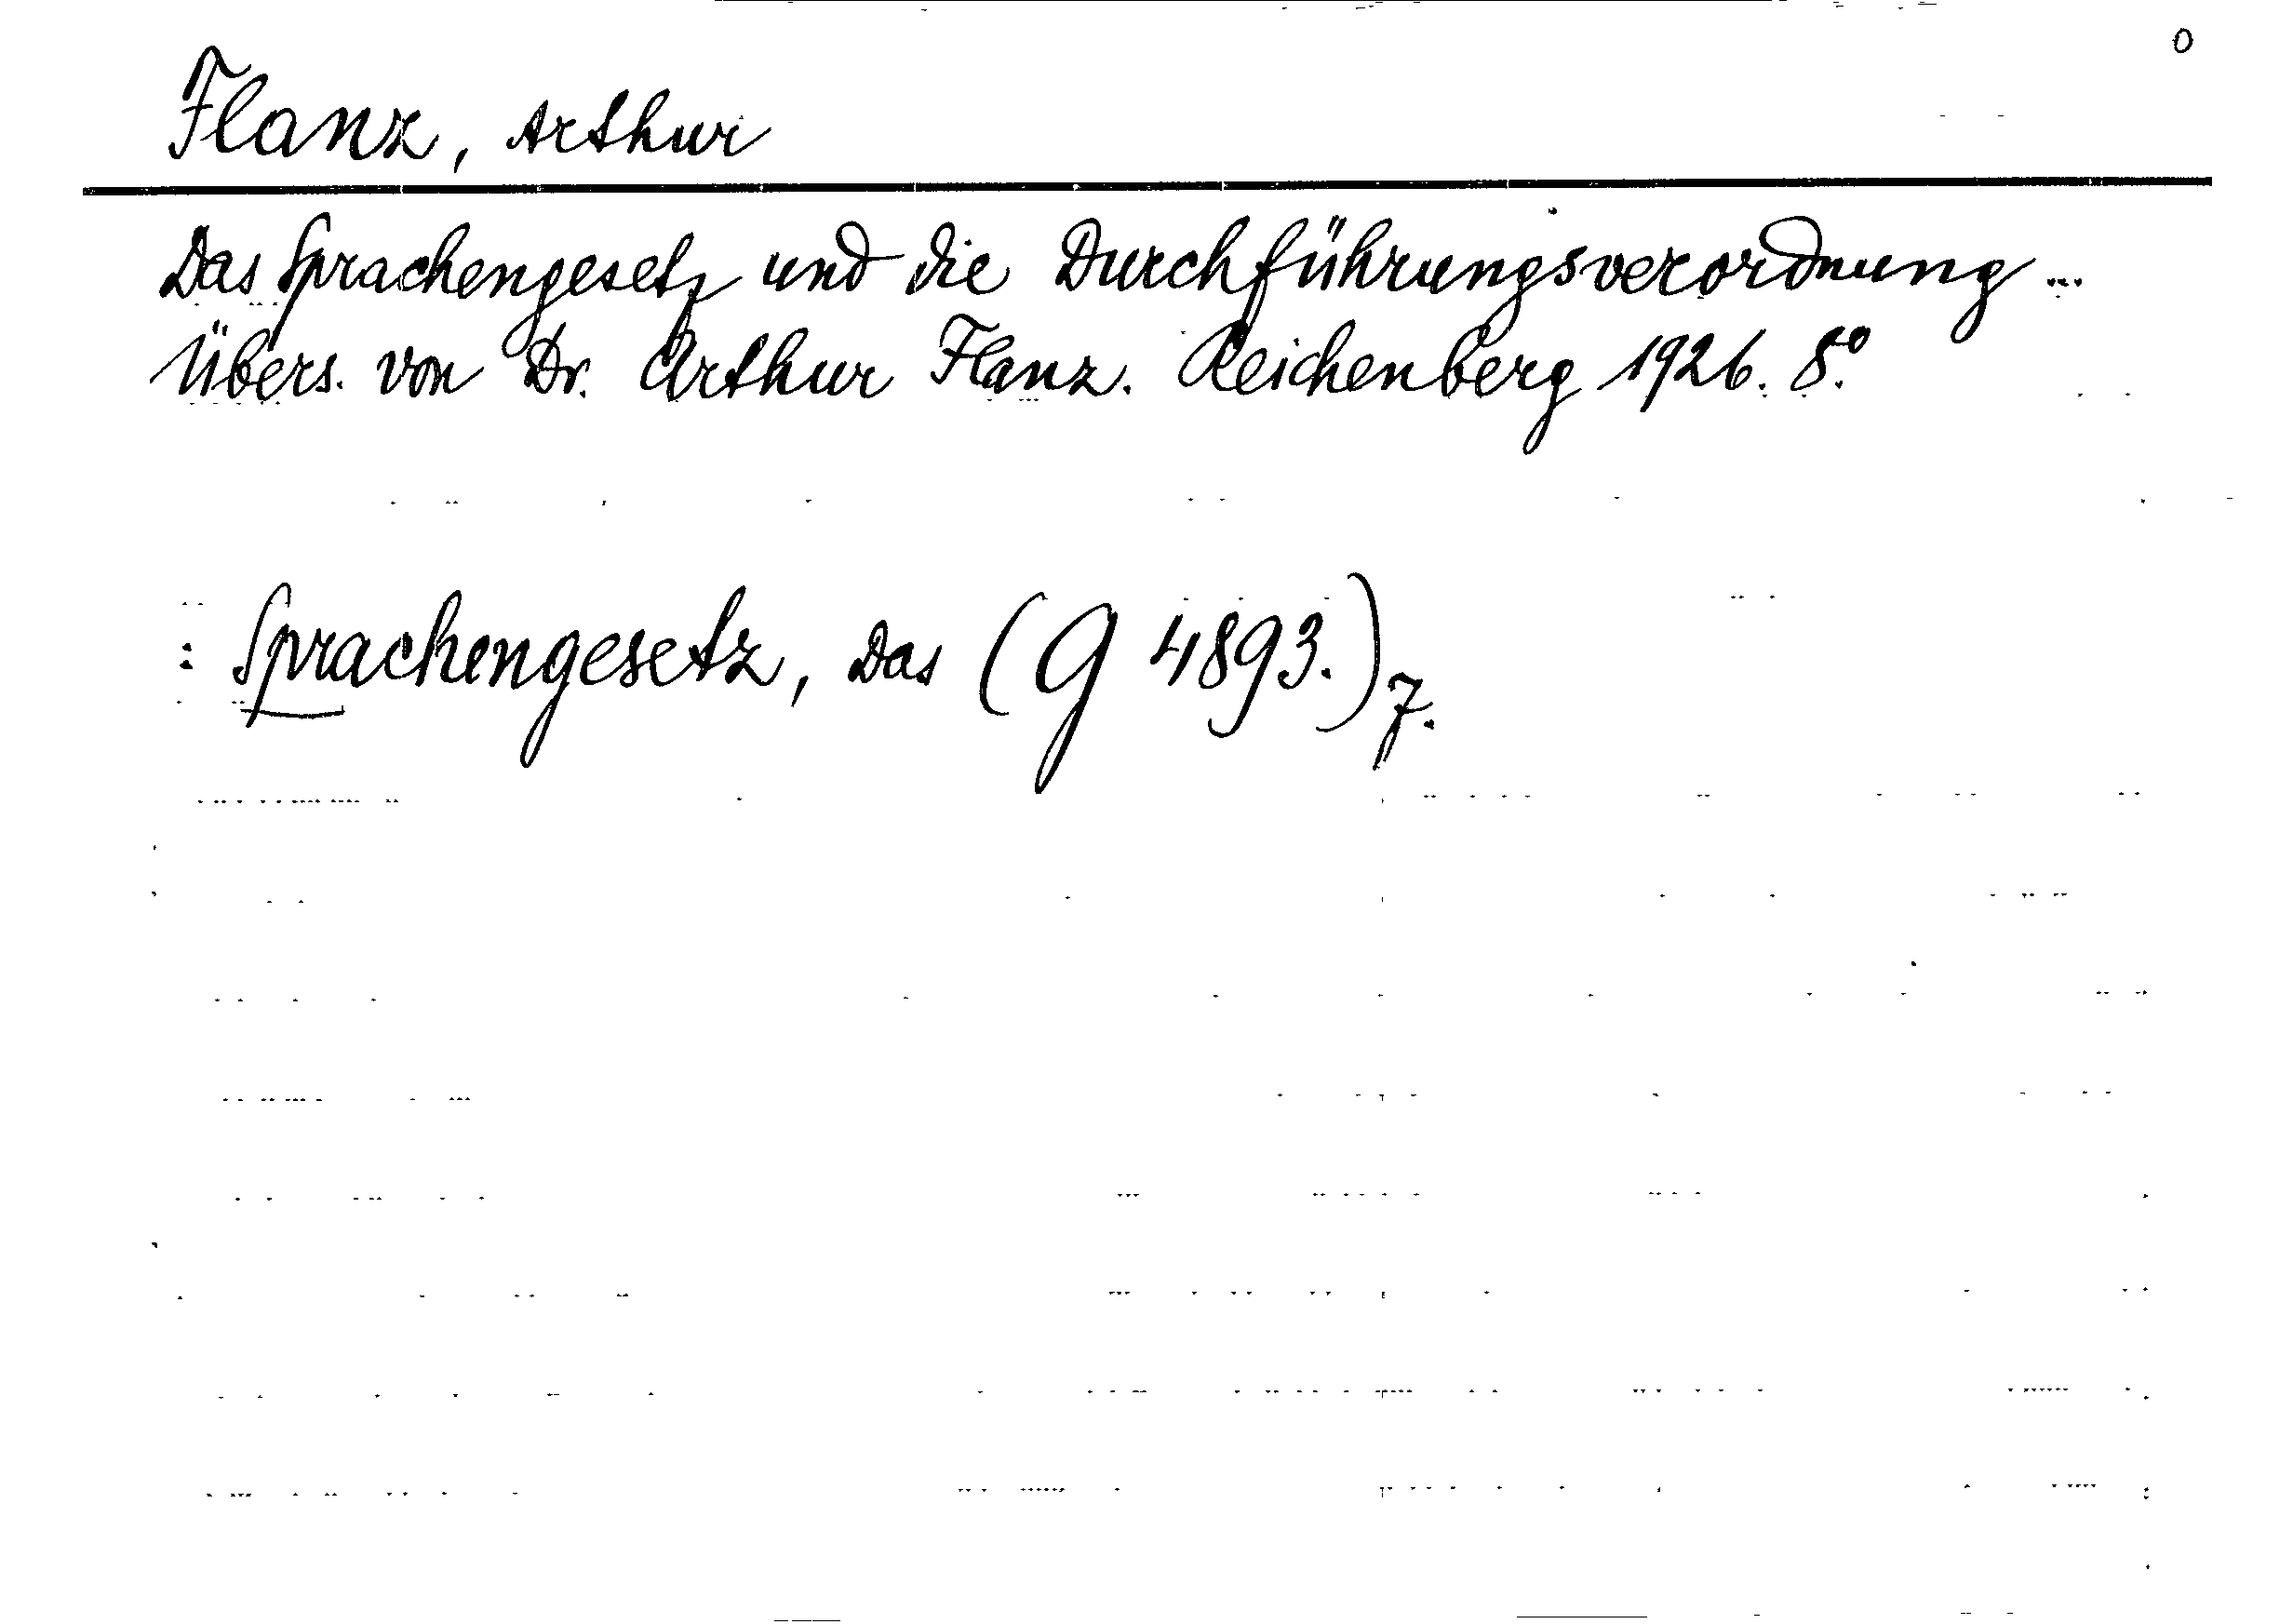 0
Flanz, Arthur
Das Sprachengesetz und die Durchführungsverordnung ...
Übers. von Dr. Arthur Flanz. Reichenberg 1926. 8.°
: Sprachengesetz, Das (G 4893.) 7.